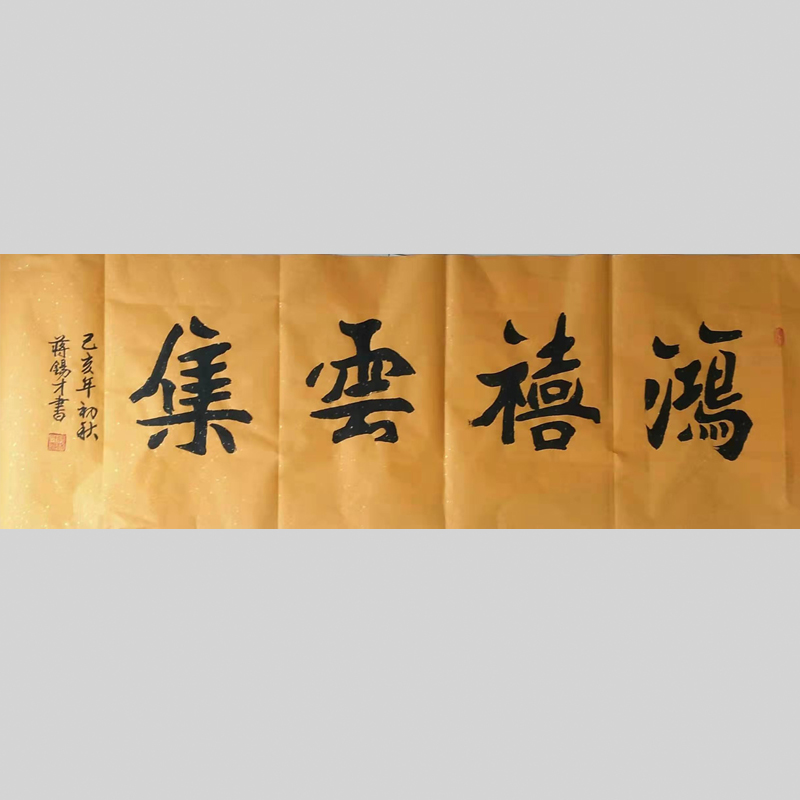 鴻禧雲集
己亥年初秋
蔣錫才書